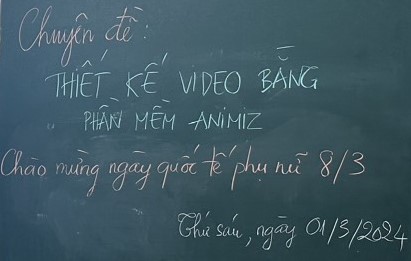 Chuyên đề:
THIẾT KẾ VIDEO BẰNG
PHẦN MỀM ANIMIZ
Chào mừng ngày quốc tế phụ nữ 8/3
Thứ sáu, ngày 01/3/2024